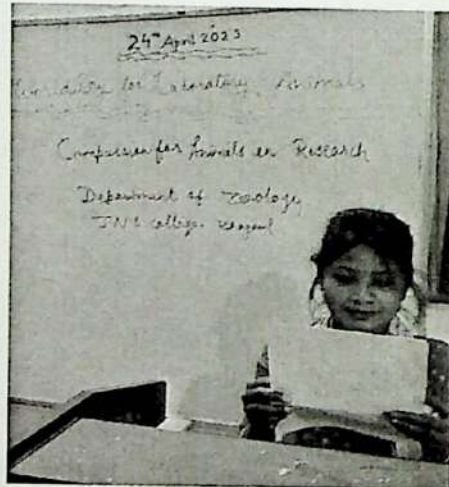 24th April 2023
World day for Laboratory Animals
Compassion for Animals in Research
Department of Zoology
College